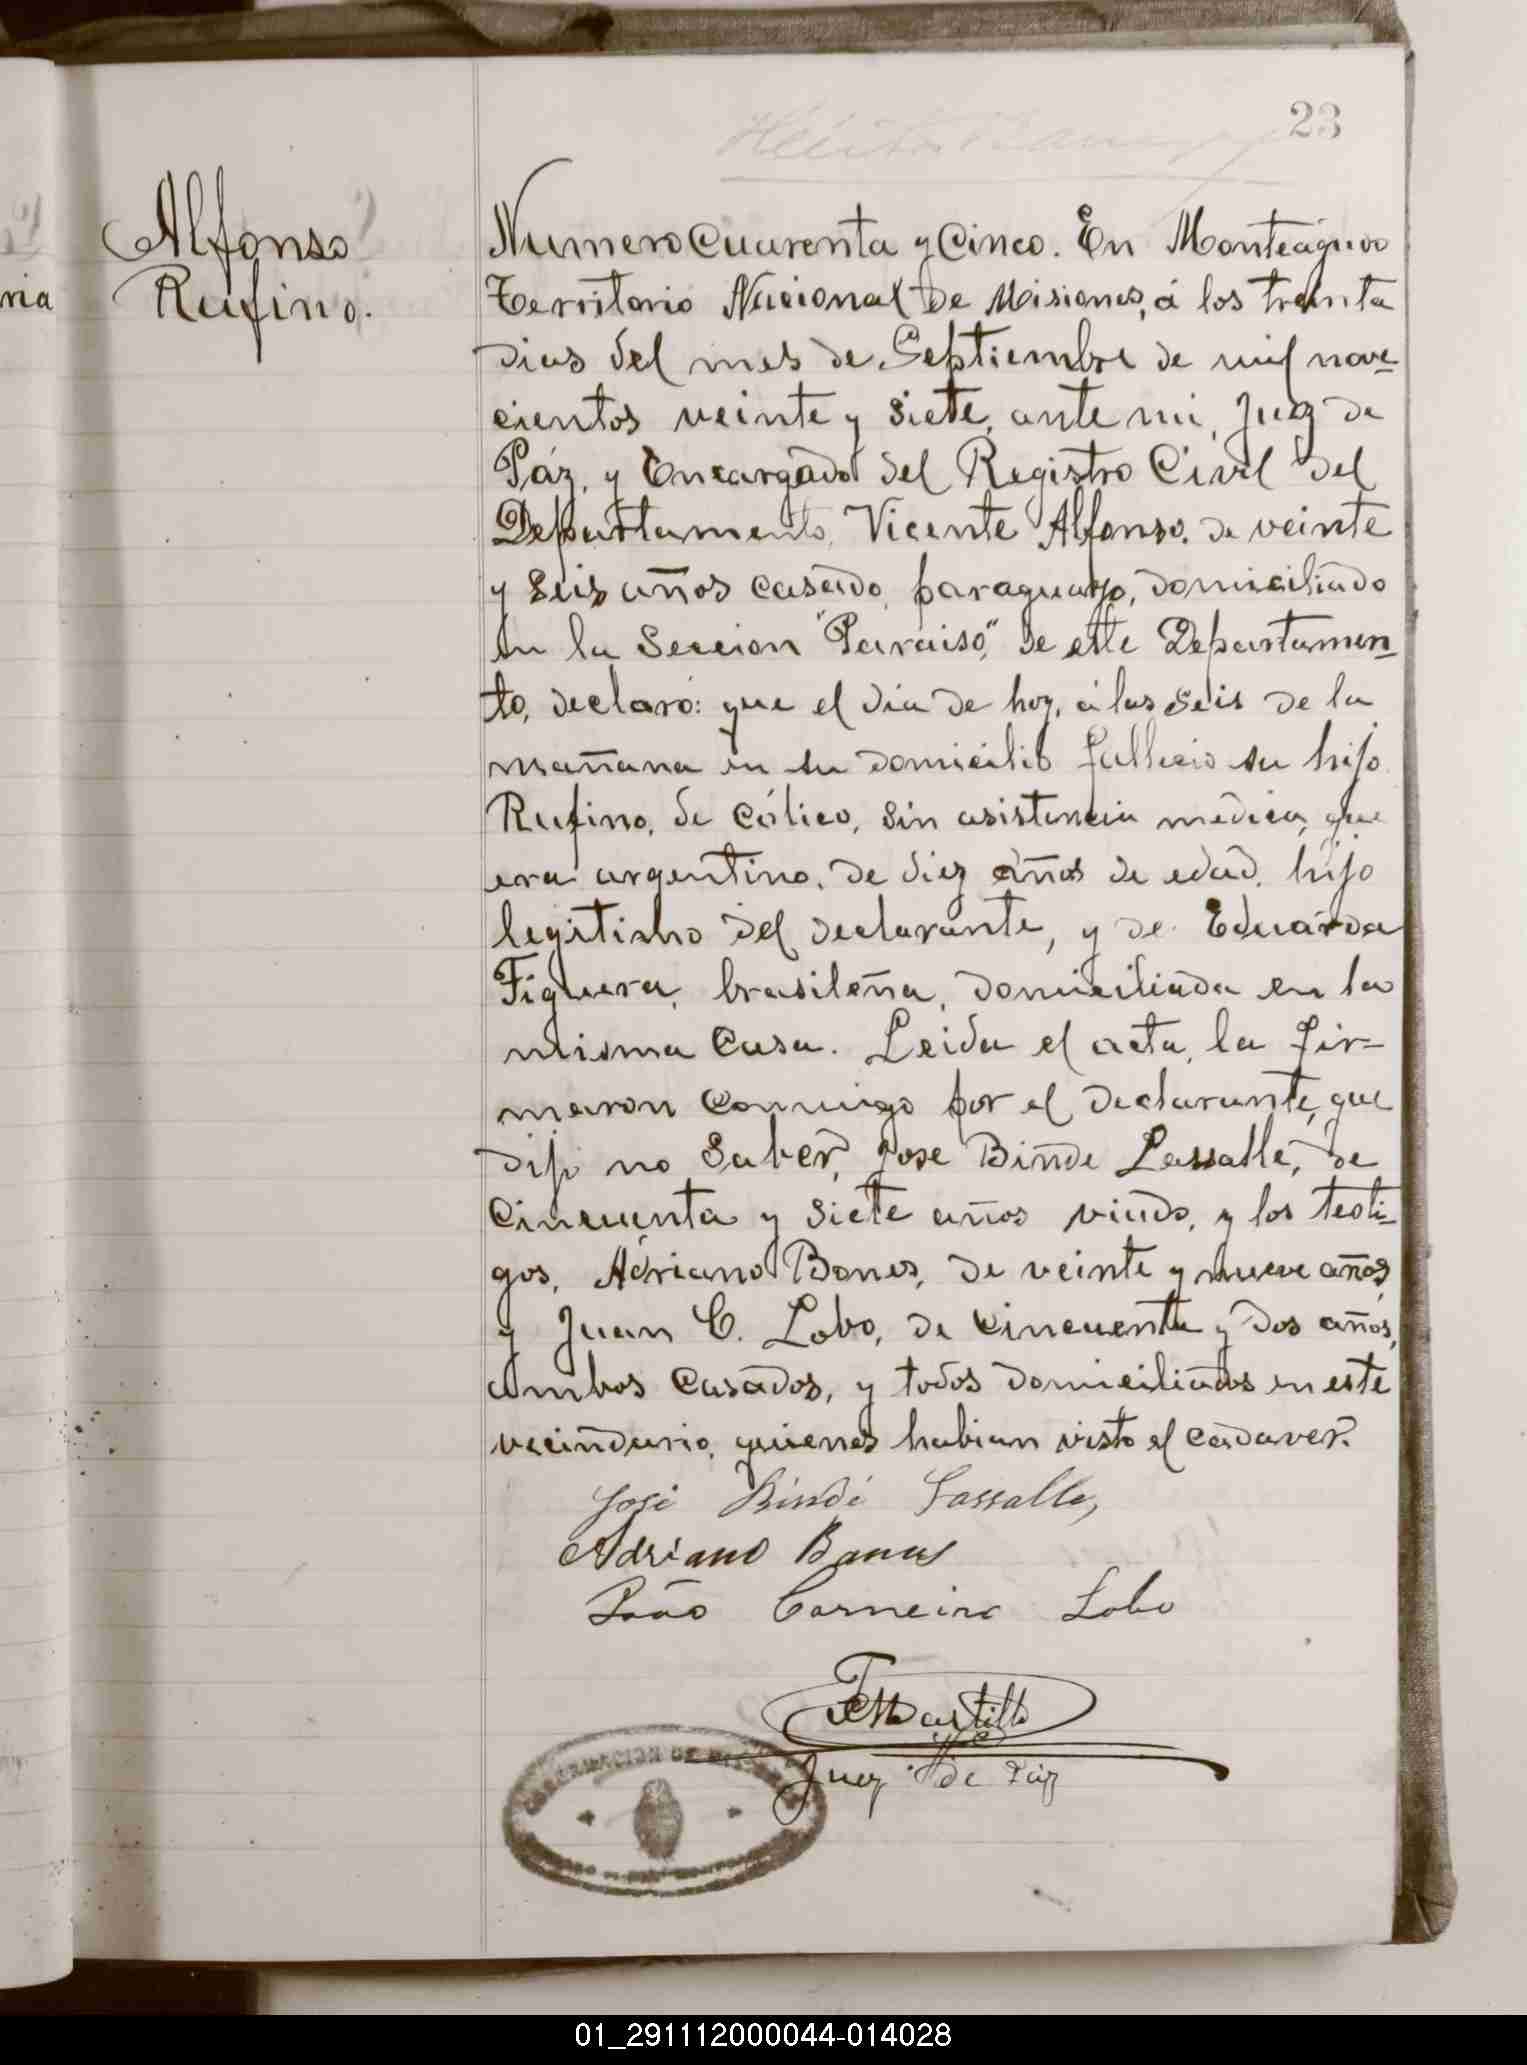 23
Alfonso
Rufino.
ria
Numero Cuarenta y Cinco. En Monteagudo
Territorio Nacional de Misiones, á los treinta
dias del mes de Septiembre de mil nove-
cientos veinte y siete, ante mi, Juez de
Páz, y Encargado del Registro Civil del
Departamento, Vicente Alfonso, de veinte
y seis años casado, paraguayo, domiciliado
en la Seccion "Paraiso", de este Departamen-
to, declaró: que el dia de hoy, á las seis de la
mañana en su domicilio fallecio su hijo
Rufino, de Cólico, sin asistencia medica, que
era argentino, de diez años de edad, hijo
legitimo del declarante, y de Eduarda
Figuera, brasileña, domiciliada en la
misma Casa. Leida el acta, la fir-
maron conmigo por el declarante, que
dijo no saber, Jose Binde Lassalle, de
Cincuenta y siete años viudo, y los testi-
gos, Adriano Bones, de veinte y nueve años,
y Juan C. Lobo, de cincuenta y dos años,
ambos casados, y todos domiciliados en este
vecindario, quienes habian visto el cadaver.
José Bindé Lassalle,
Adriano
João Carneiro Lobo
Juez de Paz
01_291112000044-014028